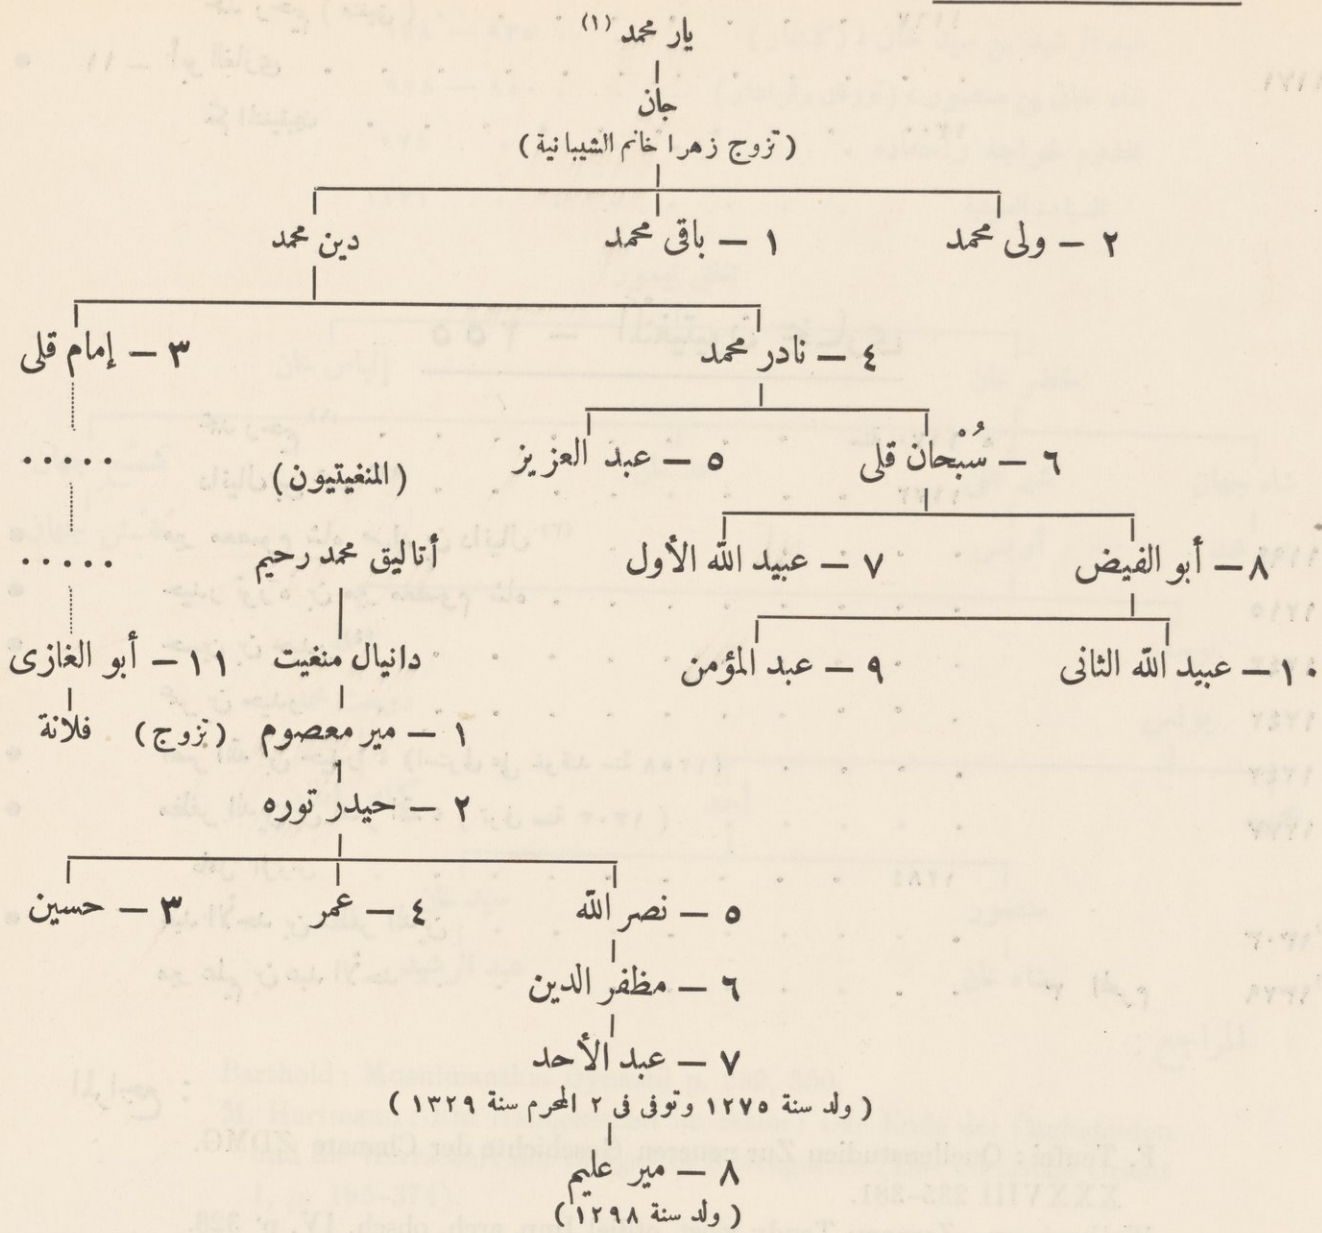 يار محمد (١)
جان
( تزوج زهرا خانم الشيبانية )
٢ — ولى محمد
١ — باقى محمد
دين محمد
٤ — نادر محمد
٣ — إمام قلى
٦ — سُبْحان قلى
٥ — عبد العزيز
(المنغيتيون)
.....
٨ — أبو الفيض
٧ — عبيد الله الأول
أتاليق محمد رحيم
.....
١٠ — عبيد الله الثانى
٩ — عبد المؤمن
دانيال منغيت
١١ — أبو الغازى
١ — مير معصوم (تزوج) فلانة
٢ — حيدر توره
٥ — نصر الله
٤ — عمر
٣ — حسين
٦ — مظفر الدين
٧ — عبد الأحد
( ولد سنة ١٢٧٥ وتوفى فى ٢ المحرم سنة ١٣٢٩ )
٨ — مير عليم
( ولد سنة ١٢٩٨ )